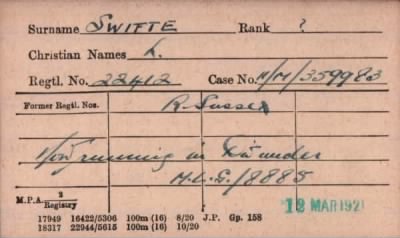 Surname SWIFTE Rank ?
Christian Names L.
Regtl. No. 22412 Case No. H/M/359983
Former Regtl. Nos. R. Sussex
Now running in under
M.L.G./8885
M.P.A. 2 Registry
12 MAR 192
17949 16422/5306 100m (16) 8/20 J.P. Gp. 158
18317 22944/5615 100m (16) 10/20